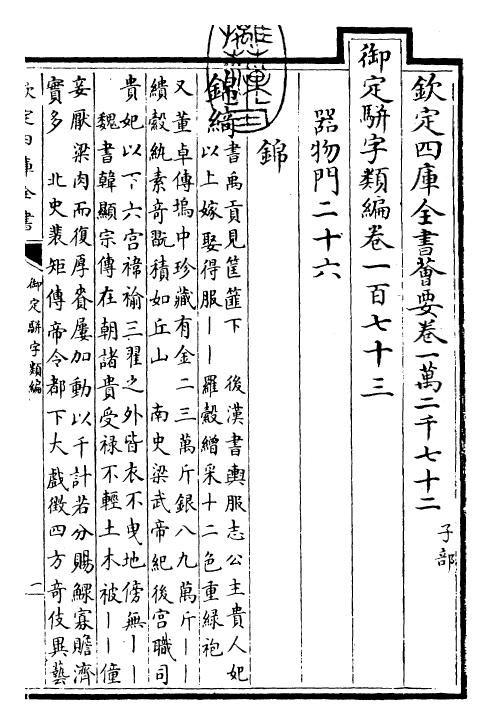 欽定四庫全書薈要卷一萬二千七十二 子部
御定駢字類編卷一百七十三
器物門二十六
錦
錦綺 書禹貢見筐篚下 後漢書輿服志公主貴人妃
以上嫁娶得服丨丨羅縠繒采十二色重緑袍
又董卓傳塢中珍藏有金二三萬斤銀八九萬斤丨丨
繢縠紈素奇翫積如丘山 南史梁武帝紀後宫職司
貴妃以下六宫褘褕三翟之外皆衣不曳地傍無丨丨
魏書韓顯宗傳在朝諸貴受禄不輕土木被丨丨僮
妾厭粱肉而復厚賚屢加動以千計若分賜鰥寡贍濟
實多 北史裴矩傳帝令都下大戲徵四方奇伎異藝
欽定四庫全書
御定駢字類編